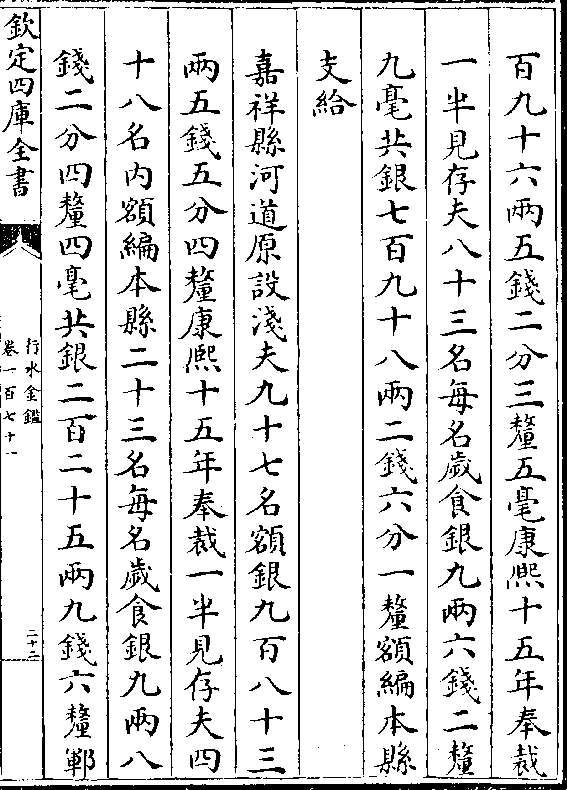 百九十六兩五錢二分三釐五毫康熙十五年奉裁
一半見存夫八十三名每名歲食銀九兩六錢二釐
九毫共銀七百九十八兩二錢六分一釐額編本縣
支給
嘉祥縣河道原設淺夫九十七名額銀九百八十三
兩五錢五分四釐康熙十五年奉裁一半見存夫四
十八名內額編本縣二十三名每名歲食銀九兩八
錢二分四釐四毫共銀二百二十五兩九錢六釐鄆
欽定四庫全書
行水金鑑
卷一百七十一
二十二